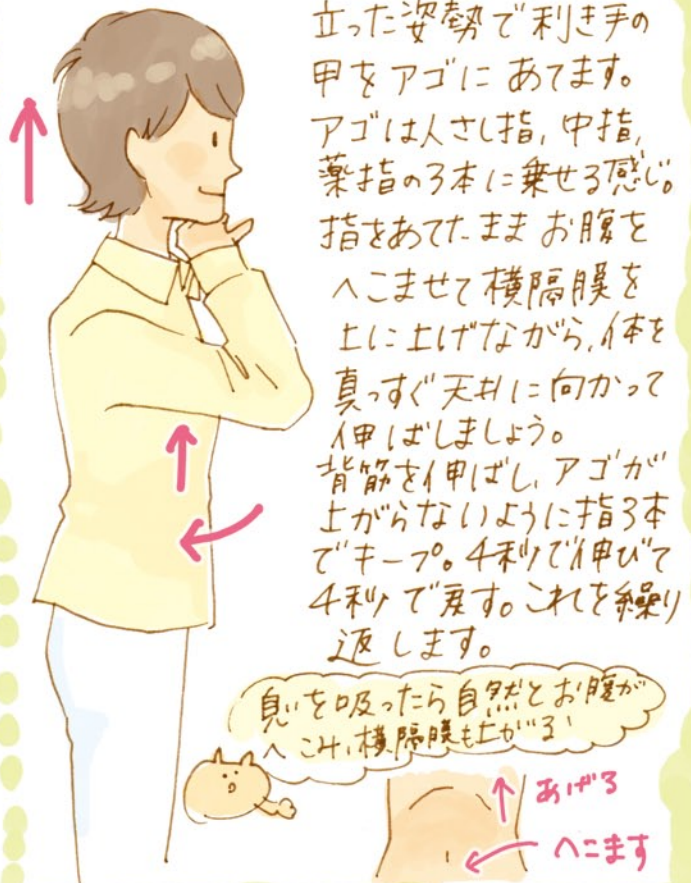 立った姿勢で利き手の
甲をアゴにあてます。
アゴは人さし指,中指,
薬指の3本に乗せる感じ。
指をあてたままお腹を
へこませて横隔膜を
上に上げながら、体を
真っすぐ天井に向かって
伸ばしましょう。
背筋を伸ばし、アゴが
上がらないように指3本
でキープ。4秒で伸びて
4秒で戻す。これを繰り
返します。
息を吸ったら自然とお腹が
へこみ、横隔膜も上がる!
あげる
へこます